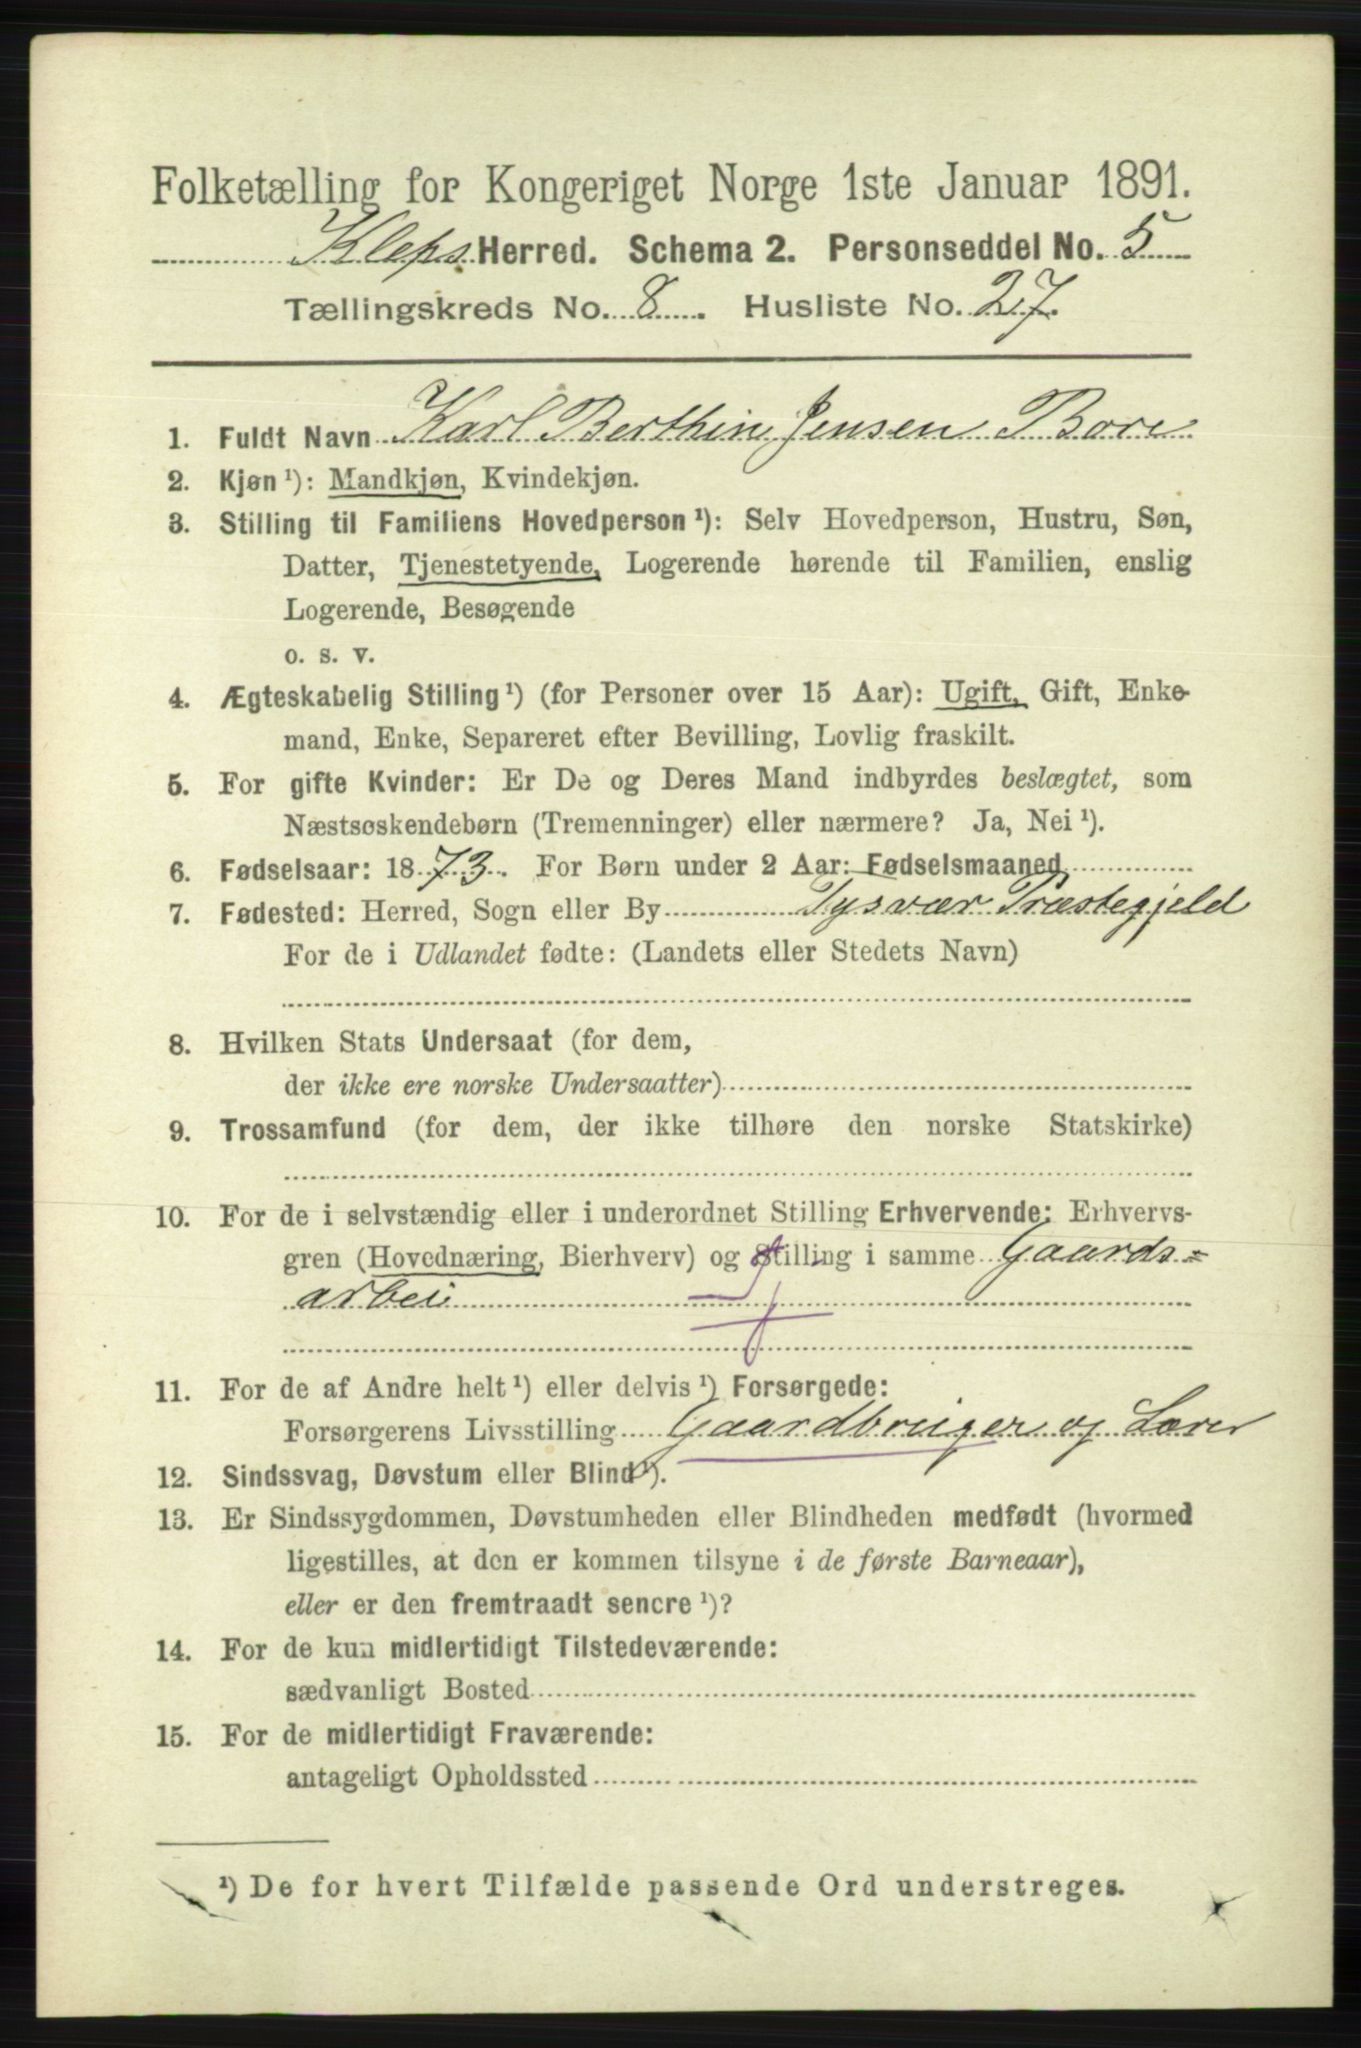 Folketælling for Kongeriget Norge 1ste Januar 1891.
Kleps Herred. Schema 2. Personseddel No. 5
Tællingskreds No. 8. Husliste No. 27.
1. Fuldt Navn Karl Berthin Jensen Bore
2. Kjøn ¹): Mandkjøn, Kvindekjøn.
3. Stilling til Familiens Hovedperson ¹): Selv Hovedperson, Hustru, Søn,
Datter, Tjenestetyende, Logerende hørende til Familien, enslig
Logerende, Besøgende
o. s. v.
4. Ægteskabelig Stilling ¹) (for Personer over 15 Aar): Ugift, Gift, Enke-
mand, Enke, Separeret efter Bevilling, Lovlig fraskilt.
5. For gifte Kvinder: Er De og Deres Mand indbyrdes beslægtet, som
Næstsøskendebørn (Tremenninger) eller nærmere? Ja, Nei ¹).
6. Fødselsaar: 1873. For Børn under 2 Aar: Fødselsmaaned
7. Fødested: Herred, Sogn eller By Tysvær Præstegjeld
For de i Udlandet fødte: (Landets eller Stedets Navn)
8. Hvilken Stats Undersaat (for dem,
der ikke ere norske Undersaatter)
9. Trossamfund (for dem, der ikke tilhøre den norske Statskirke)
10. For de i selvstændig eller i underordnet Stilling Erhvervende: Erhvervs-
gren (Hovednæring, Bierhverv) og Stilling i samme Gaards=
arbei
11. For de af Andre helt ¹) eller delvis ¹) Forsørgede:
Forsørgerens Livsstilling Gaardbruger og Lærer
12. Sindssvag, Døvstum eller Blind ¹).
13. Er Sindssygdommen, Døvstumheden eller Blindheden medfødt (hvormed
ligestilles, at den er kommen tilsyne i de første Barneaar),
eller er den fremtraadt senere ¹)?
14. For de kun midlertidigt Tilstedeværende:
sædvanligt Bosted
15. For de midlertidigt Fraværende:
antageligt Opholdssted
¹) De for hvert Tilfælde passende Ord understreges.